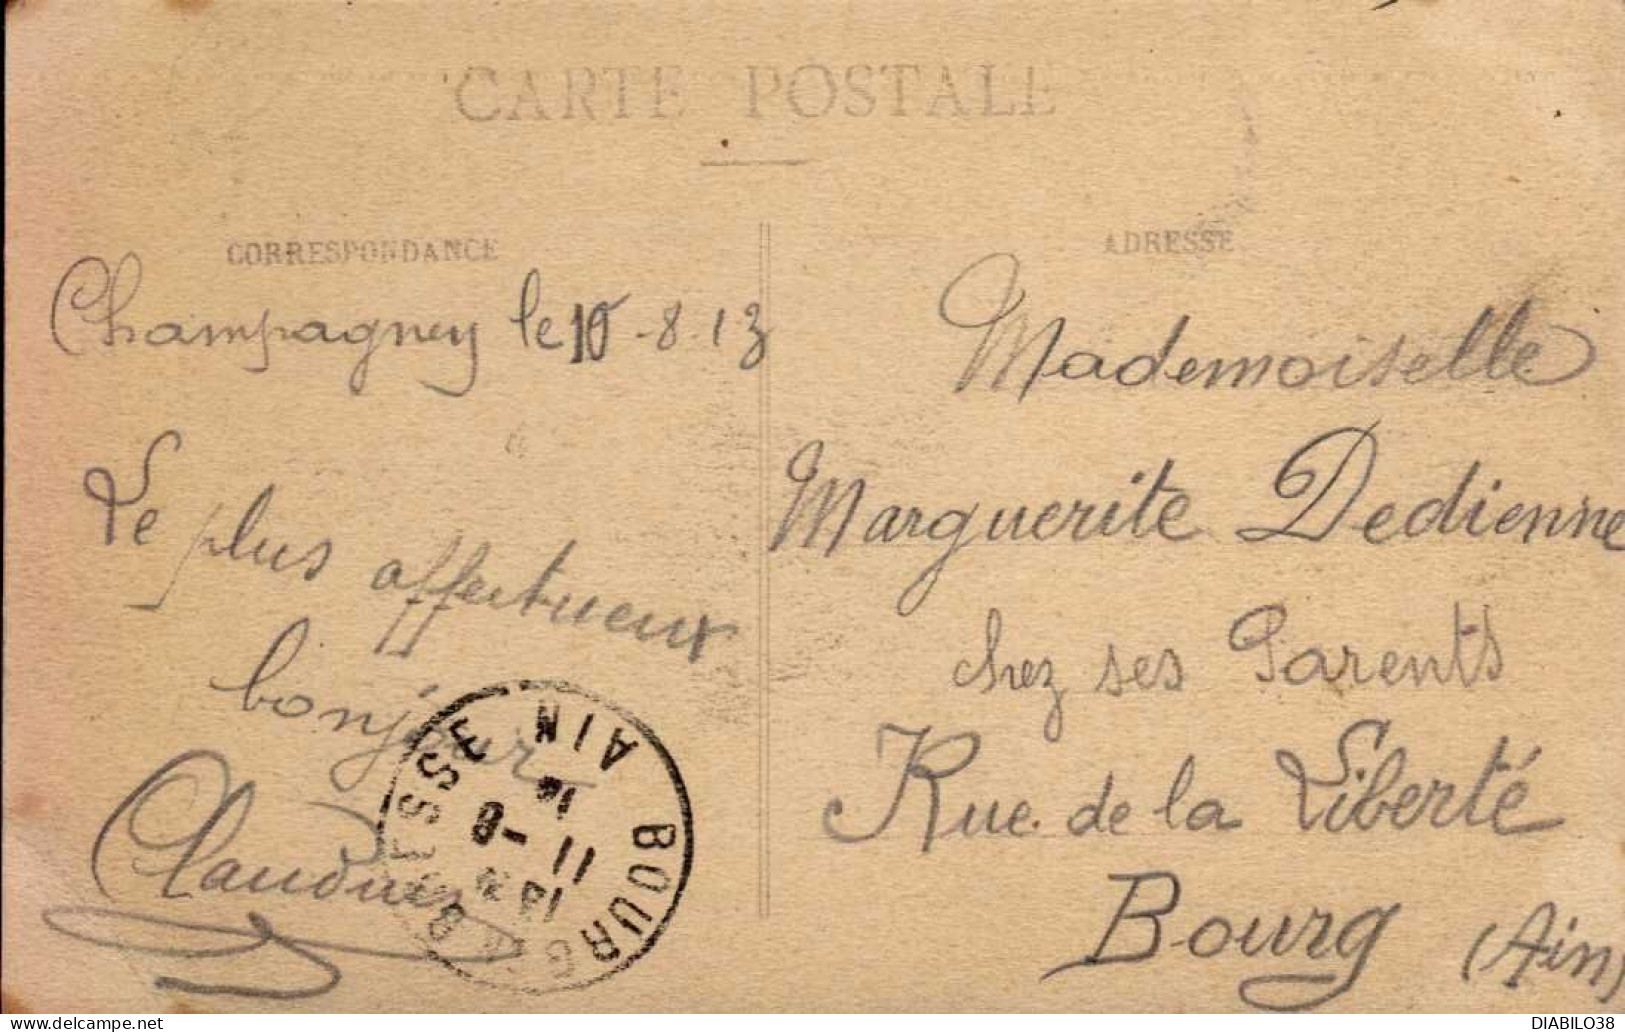 CARTE POSTALE
CORRESPONDANCE
Champagney le 10-8.13
Le plus affectueux
bonjour
ADRESSE
Mademoiselle
Marguerite Dedienne
chez ses Parents
Rue de la Liberté
Bourg (Ain)
BOURG BRESSE AIN
11 -8
13
DIABILO38